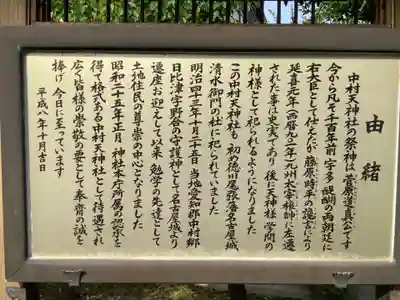 由緒
中村天神社の祭神は菅原道真公です
今から凡そ千百年前宇多 醍醐の両朝廷に
右大臣として仕えたが藤原時平の讒言により
延喜元年(西暦九〇一年)九州太宰権帥に左遷
された事は史実であり 後に天神様 学問の
神様として祀られるようになりました
この中村天神社も 初め徳川尾張藩名古屋城
清水御門の杜に祀られていました
明治四十三年十月二十五日 当地愛知郡中村郷
日比津宇野金の守護神として名古屋城より
遷座お迎えして以来 勉学の先達として
土地住民の尊崇の中心となりました
昭和二十五年正月 神社本庁所属の認承を
得て格式ある中村天神社として待遇され
広く皆様の崇敬の要として奉斎の誠を
捧げ 今日に至っています
平成八年十月吉日